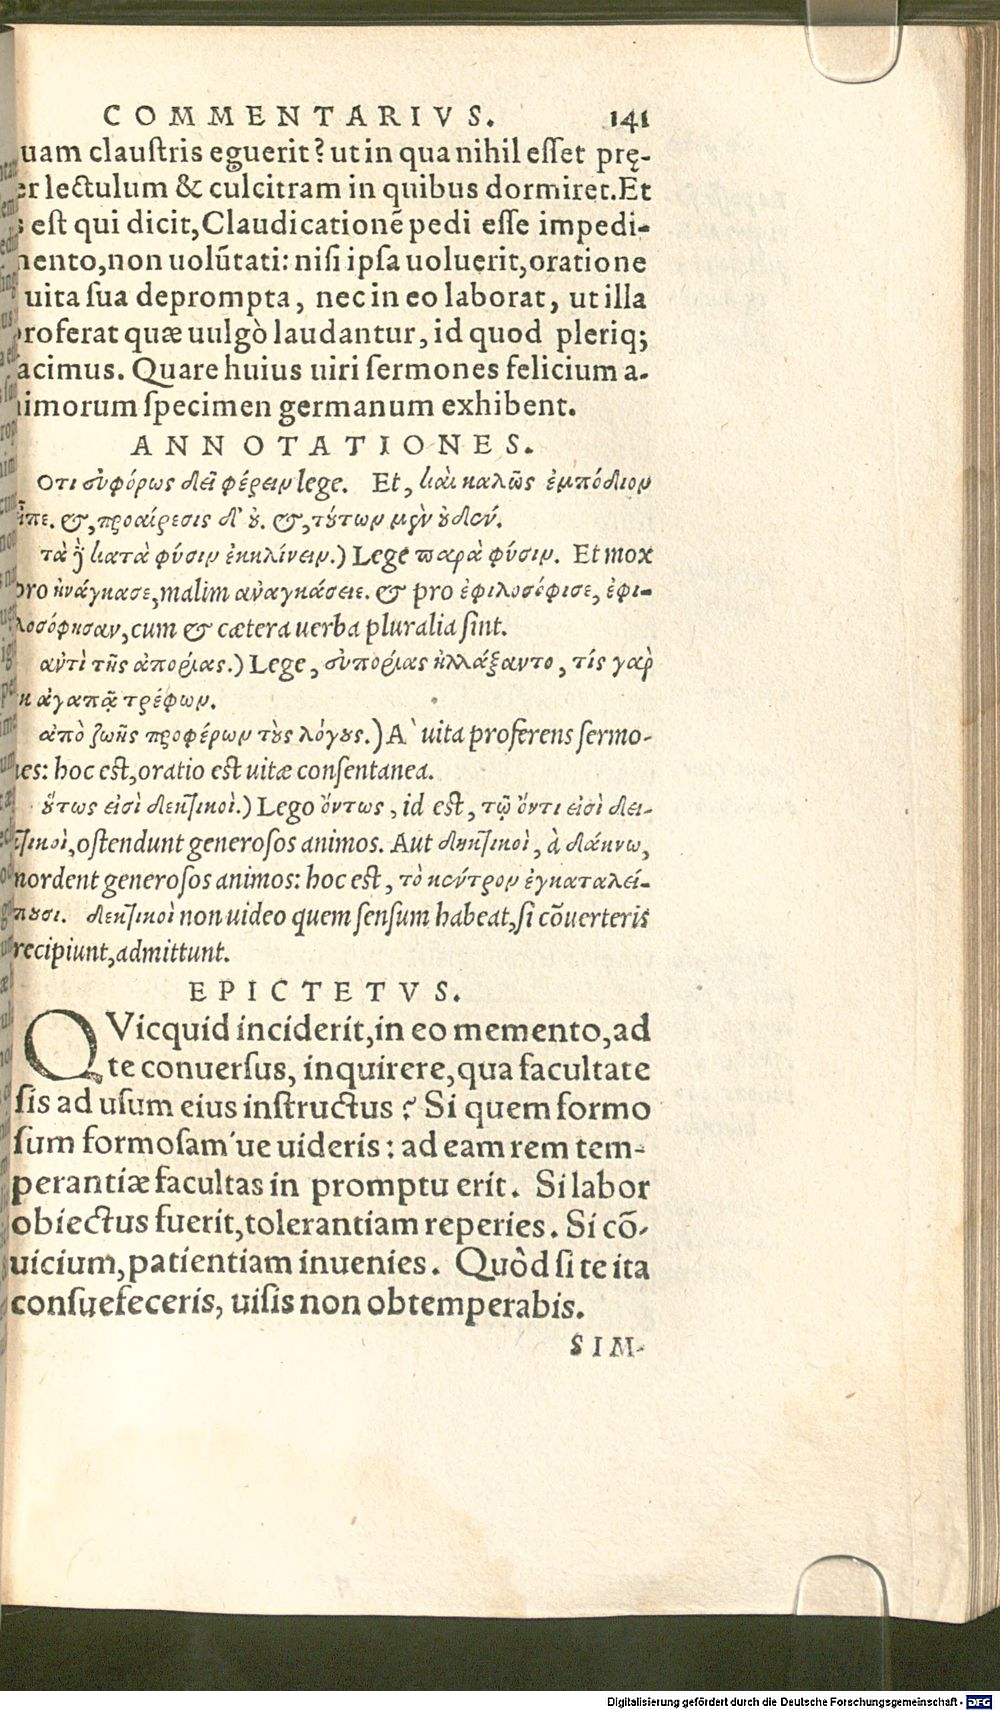 COMMENTARIVS. 141
uam claustris eguerit? ut in qua nihil esset prę-
er lectulum & culcitram in quibus dormiret. Et
est qui dicit, Claudicationẽ pedi esse impedi-
ento, non uolũtati: nisi ipsa uoluerit, oratione
uita sua deprompta, nec in eo laborat, ut illa
roferat quæ uulgò laudantur, id quod pleriq;
acimus. Quare huius uiri sermones felicium a-
imorum specimen germanum exhibent.
ANNOTATIONES.
Οτι συφόρως δεῖ φέρειν lege. Et, καὶ καλῶς ἐμπόδιον
πε. &, προαίρεσις δ' ȣ. &, τȣ́των μὲν ȣ̓δέν.
τὰ ἢ κατὰ φύσιν ἐκκλίνειν.) Lege παρὰ φύσιν. Et mox
pro ἠνάγκασε, malim ἀναγκάσειε. & pro ἐφιλοσόφισε, ἐφι-
λοσόφησαν, cum & cætera uerba pluralia sint.
αὐτὶ τῆς ἀπορίας.) Lege, συπορίας ἠλλάξαντο, τίς γαρ
κ ἀγαπᾷ τρέφων.
ἀπὸ ζωῆς προφέρων τȣ̀ς λόγȣς.) A' uita proferens sermo-
es: hoc est, oratio est uitæ consentanea.
ȣ̔́τως εἰσὶ δεκτικοὶ.) Lego ὄντως, id est, τῷ ὄντι εἰσὶ δει-
κτικοὶ, ostendunt generosos animos. Aut δηκτικοὶ, à δάκνω,
mordent generosos animos: hoc est, τὸ κέντρον ἐγκαταλεί-
πȣσι. δεκτικοὶ non uideo quem sensum habeat, si cõuerteris
recipiunt, admittunt.
EPICTETVS.
QVicquid inciderit, in eo memento, ad
te conuersus, inquirere, qua facultate
sis ad usum eius instructus? Si quem formo
sum formosam'ue uideris: ad eam rem tem-
perantiæ facultas in promptu erit. Si labor
obiectus fuerit, tolerantiam reperies. Si cõ-
uicium, patientiam inuenies. Quòd si te ita
consuefeceris, uisis non obtemperabis.
SIM-
Digitalisierung gefördert durch die Deutsche Forschungsgemeinschaft - DFG